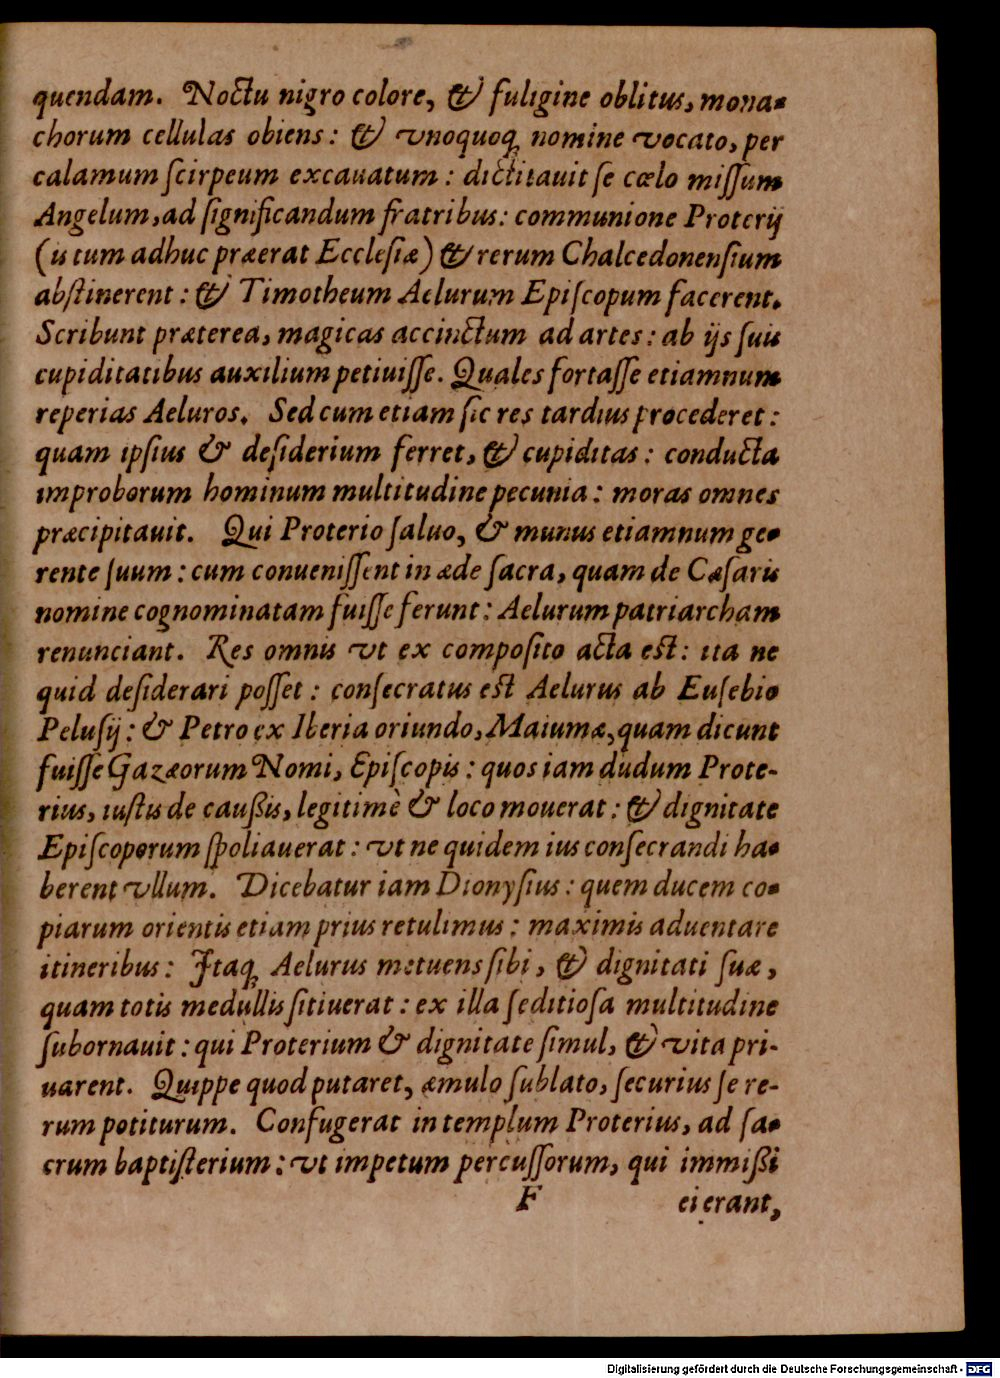 quendam. Noctu nigro colore, & fuligine oblitus, mona-
chorum cellulas obiens: & vnoquoq; nomine vocato, per
calamum ſcirpeum excauatum: dictitauit ſe cœlo miſſum
Angelum, ad ſignificandum fratribus: communione Proterij
(is tum adhuc præerat Eccleſiæ) & rerum Chalcedonenſium
abſtinerent: & Timotheum Aelurum Epiſcopum facerent.
Scribunt præterea, magicas accinctum ad artes: ab ijs ſuis
cupiditatibus auxilium petiuiſſe. Quales fortaſſe etiamnum
reperias Aeluros. Sed cum etiam ſic res tardius procederet:
quam ipſius & deſiderium ferret, & cupiditas: conducta
improborum hominum multitudine pecunia: moras omnes
præcipitauit. Qui Proterio ſaluo, & munus etiamnum ge-
rente ſuum: cum conueniſſent in æde ſacra, quam de Cæſaris
nomine cognominatam fuiſſe ferunt: Aelurum patriarcham
renunciant. Res omnis vt ex compoſito acta eſt: ita ne
quid deſiderari poſſet: conſecratus eſt Aelurus ab Euſebio
Peluſij: & Petro ex Iberia oriundo, Maiumæ, quam dicunt
fuiſſe Gazæorum Nomi, Epiſcopis: quos iam dudum Prote-
rius, iuſtis de cauſſis, legitimè & loco mouerat: & dignitate
Epiſcoporum ſpoliauerat: vt ne quidem ius conſecrandi ha-
berent vllum. Dicebatur iam Dionyſius: quem ducem co-
piarum orientis etiam prius retulimus: maximis aduentare
itineribus: Itaq; Aelurus metuens ſibi, & dignitati ſuæ,
quam totis medullis ſitiuerat: ex illa ſeditioſa multitudine
ſubornauit: qui Proterium & dignitate ſimul, & vita pri-
uarent. Quippe quod putaret, æmulo ſublato, ſecurius ſe re-
rum potiturum. Confugerat in templum Proterius, ad ſa-
crum baptiſterium: vt impetum percuſſorum, qui immiſſi
F ei erant,
Digitalisierung gefördert durch die Deutsche Forschungsgemeinschaft - DFG